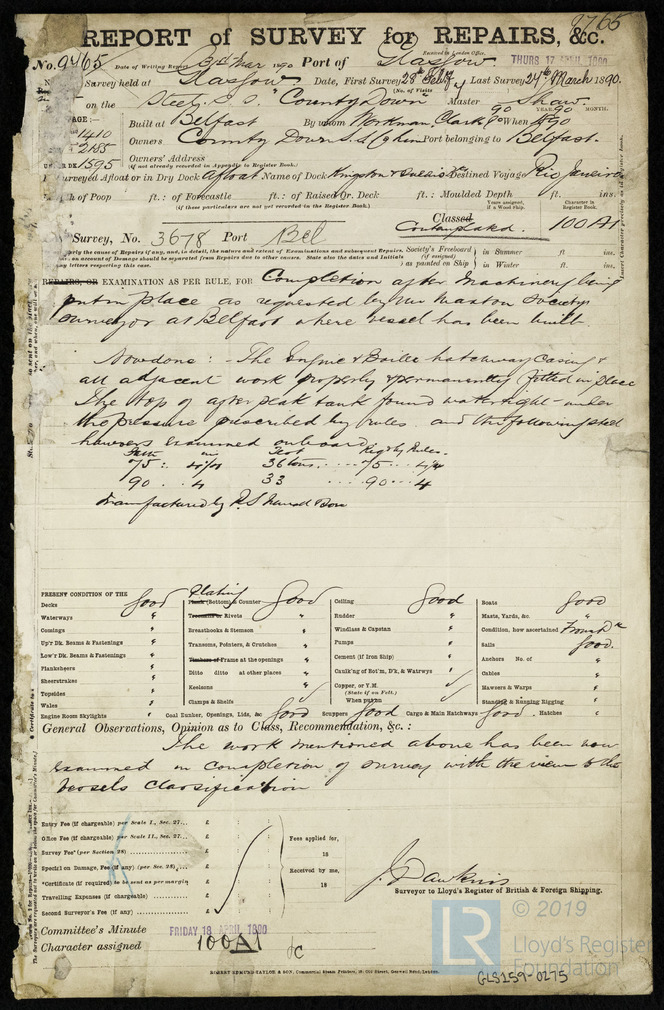 9765
REPORT of SURVEY for REPAIRS, &c.
Received in London Office,
No. 9465 Date of Writing Report 31st Mar 1890 Port of Glasgow THURS 17 APRIL 1890
Survey held at Glasgow Date, First Survey 28th Feby Last Survey 24th March 1890.
(No. of Visits
on the Steel S.S. "County Down" Master Shaw
YEAR. MONTH.
Built at Belfast By whom Workman, Clark & Co When 90
1410
2155
1595
Owners County Down S.S. Co Port belonging to Belfast.
Owners' Address
(if not already recorded in Appendix to Register Book.)
Surveyed Afloat or in Dry Dock afloat Name of Dock Destined Voyage Rio Janeiro
of Poop ft.: of Forecastle ft.: of Raised Qr. Deck ft.: Moulded Depth ft. ins.
(if these particulars are not yet recorded in the Register Book.)
Years assigned, if a Wood ship.
Character in Register Book.
Classed
Contemplated. 100A1
Survey, No. 3678 Port Bel
Society's Freeboard (if assigned) as painted on Ship
in Summer ft. ins.
in Winter ft. ins.
REPAIRS, OR EXAMINATION AS PER RULE, FOR Completion after Machinery being
put in place as requested by Mr Maxton Societys
surveyor at Belfast where vessel has been built.
Now done: - The Engine & Boiler hatchway Casing &
all adjacent work properly & permanently fitted in place
The top of after peak tank found watertight under
the pressure prescribed by rules. and the following steel
hawsers examined onboard
Test Reqd by Rules.
75 36 tons 75
90 .. 4 33 90 .. 4
manufactured by R.S. Newall & Son
PRESENT CONDITION OF THE
Decks good
Waterways "
Comings "
Up'r Dk. Beams & Fastenings "
Low'r Dk. Beams & Fastenings "
Planksheers "
Sheerstrakes "
Topsides "
Wales "
Engine Room Skylights "
Plating
Plank (Bottom) & Counter good
Treenails or Rivets "
Breasthooks & Stemson "
Transoms, Pointers, & Crutches "
Timbers or Frame at the openings "
Ditto ditto at other places "
Keelsons "
Clamps & Shelfs
Coal Bunker, Openings, Lids, &c good
Ceiling good
Rudder "
Windlass & Capstan "
Pumps "
Cement (if Iron Ship) "
Caulk'ng of Bot'm, D'k, & Watrwys "
Copper, or Y.M.
(State if on Felt.)
When put on
Scuppers good Cargo & Main Hatchways good
Boats good
Masts, Yards, &c. "
Condition, how ascertained From Dk
Sails good.
Anchors No. of "
Cables "
Hawsers & Warps "
Standing & Running Rigging "
Hatches "
General Observations, Opinion as to Class, Recommendation, &c. :
The work mentioned above has been now
examined in completion of survey with the view to the
vessels classification
Entry Fee (if chargeable) per Scale I., Sec. 27... £ : :
Office Fee (if chargeable) per Scale II., Sec. 27... £ : :
Survey Fee (per Section 28) £ : :
Special on Damage, Fee (if any) (per Sec. 28) £ : :
*Certificate (if required) to be sent as per margin £
Travelling Expenses (if chargeable) £
Second Surveyor's Fee (if any) £
Fees applied for,
18
Received by me,
18
J. Dawkins
Surveyor to Lloyd's Register of British & Foreign Shipping.
Committee's Minute FRIDAY 18 APRIL 1890
Character assigned 100A1
ROBERT EDMUND TAYLOR & SON, Commercial Steam Printers, 19, Old Street, Goswell Road, London.
LR
© 2019
Lloyd's Register
Foundation
GLS159-0275